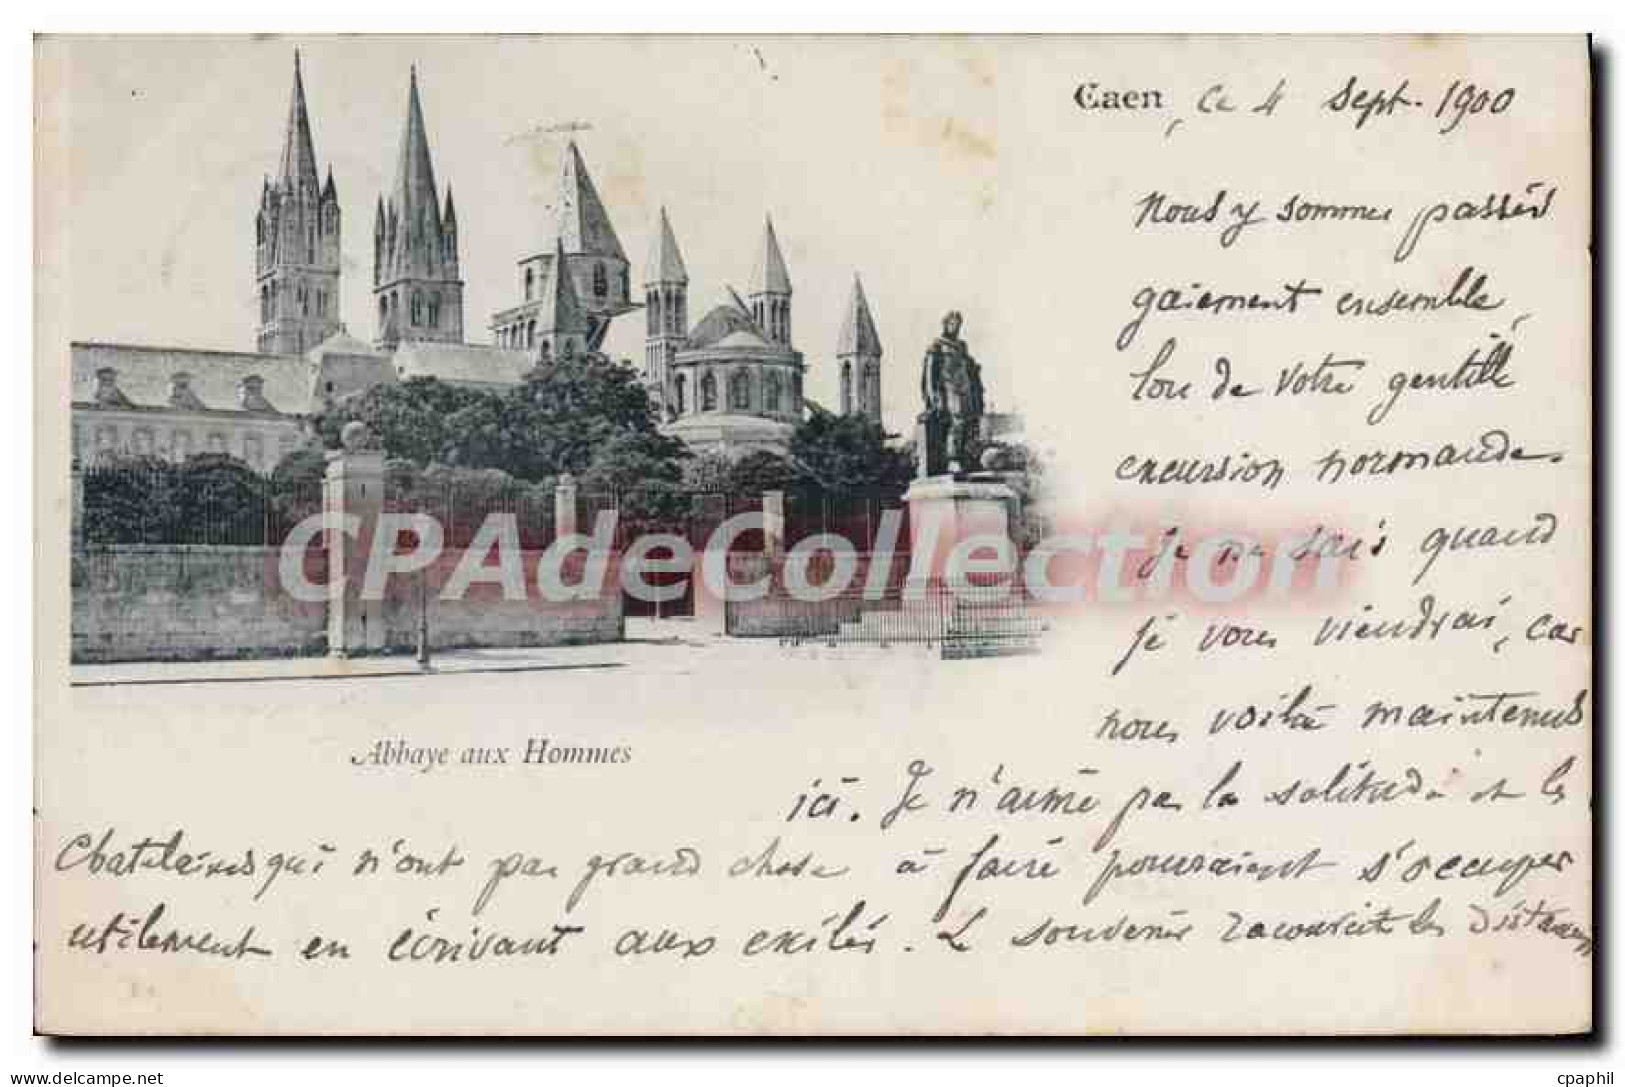 Caen, ce 4 Sept. 1900
Nous y sommes passés
gaiement ensemble,
lors de votre gentille
excursion normande.
Je ne sais quand
je vous viendrai, car
nous voilà maintenus
ici. Je n'aime pas la solitude et les
Chatelaines qui n'ont pas grand chose à faire pourraient s'occuper
utilement en écrivant aux exilés. Le souvenir racourcit les distances
Abbaye aux Hommes
CPAdeCollection
delcampe.net
cpaphil